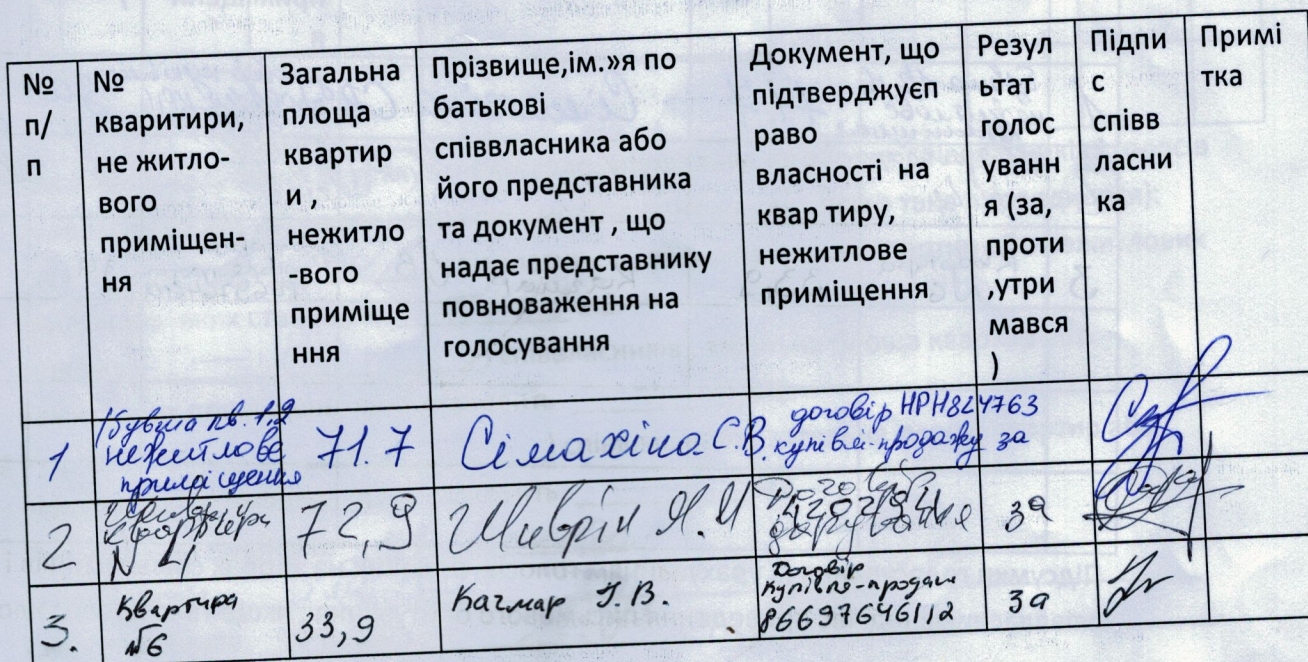 № п/п
№ кваритири, не житло-вого приміщен-ня
Загальна площа квартир и , нежитло -вого приміще ння
Прізвище,ім.»я по батькові співвласника або його представника та документ , що надає представнику повноваження на голосування
Документ, що підтверджуєп раво власності на квар тиру, нежитлове приміщення
Резул ьтат голос уванн я (за, проти ,утри мався )
Підпи с співв ласни ка
Примі тка
1
кв. 1,2
нежитлове
приміщення
71.7
Сімахіна С.В.
договір НРН824763
купівлі-продажу
за
2
квартири
N 4
72,9
Договір
дарування
за
3.
Квартира
№6
33,9
Качмар І.В.
Договір
купівлі-продаж
86697646112
за